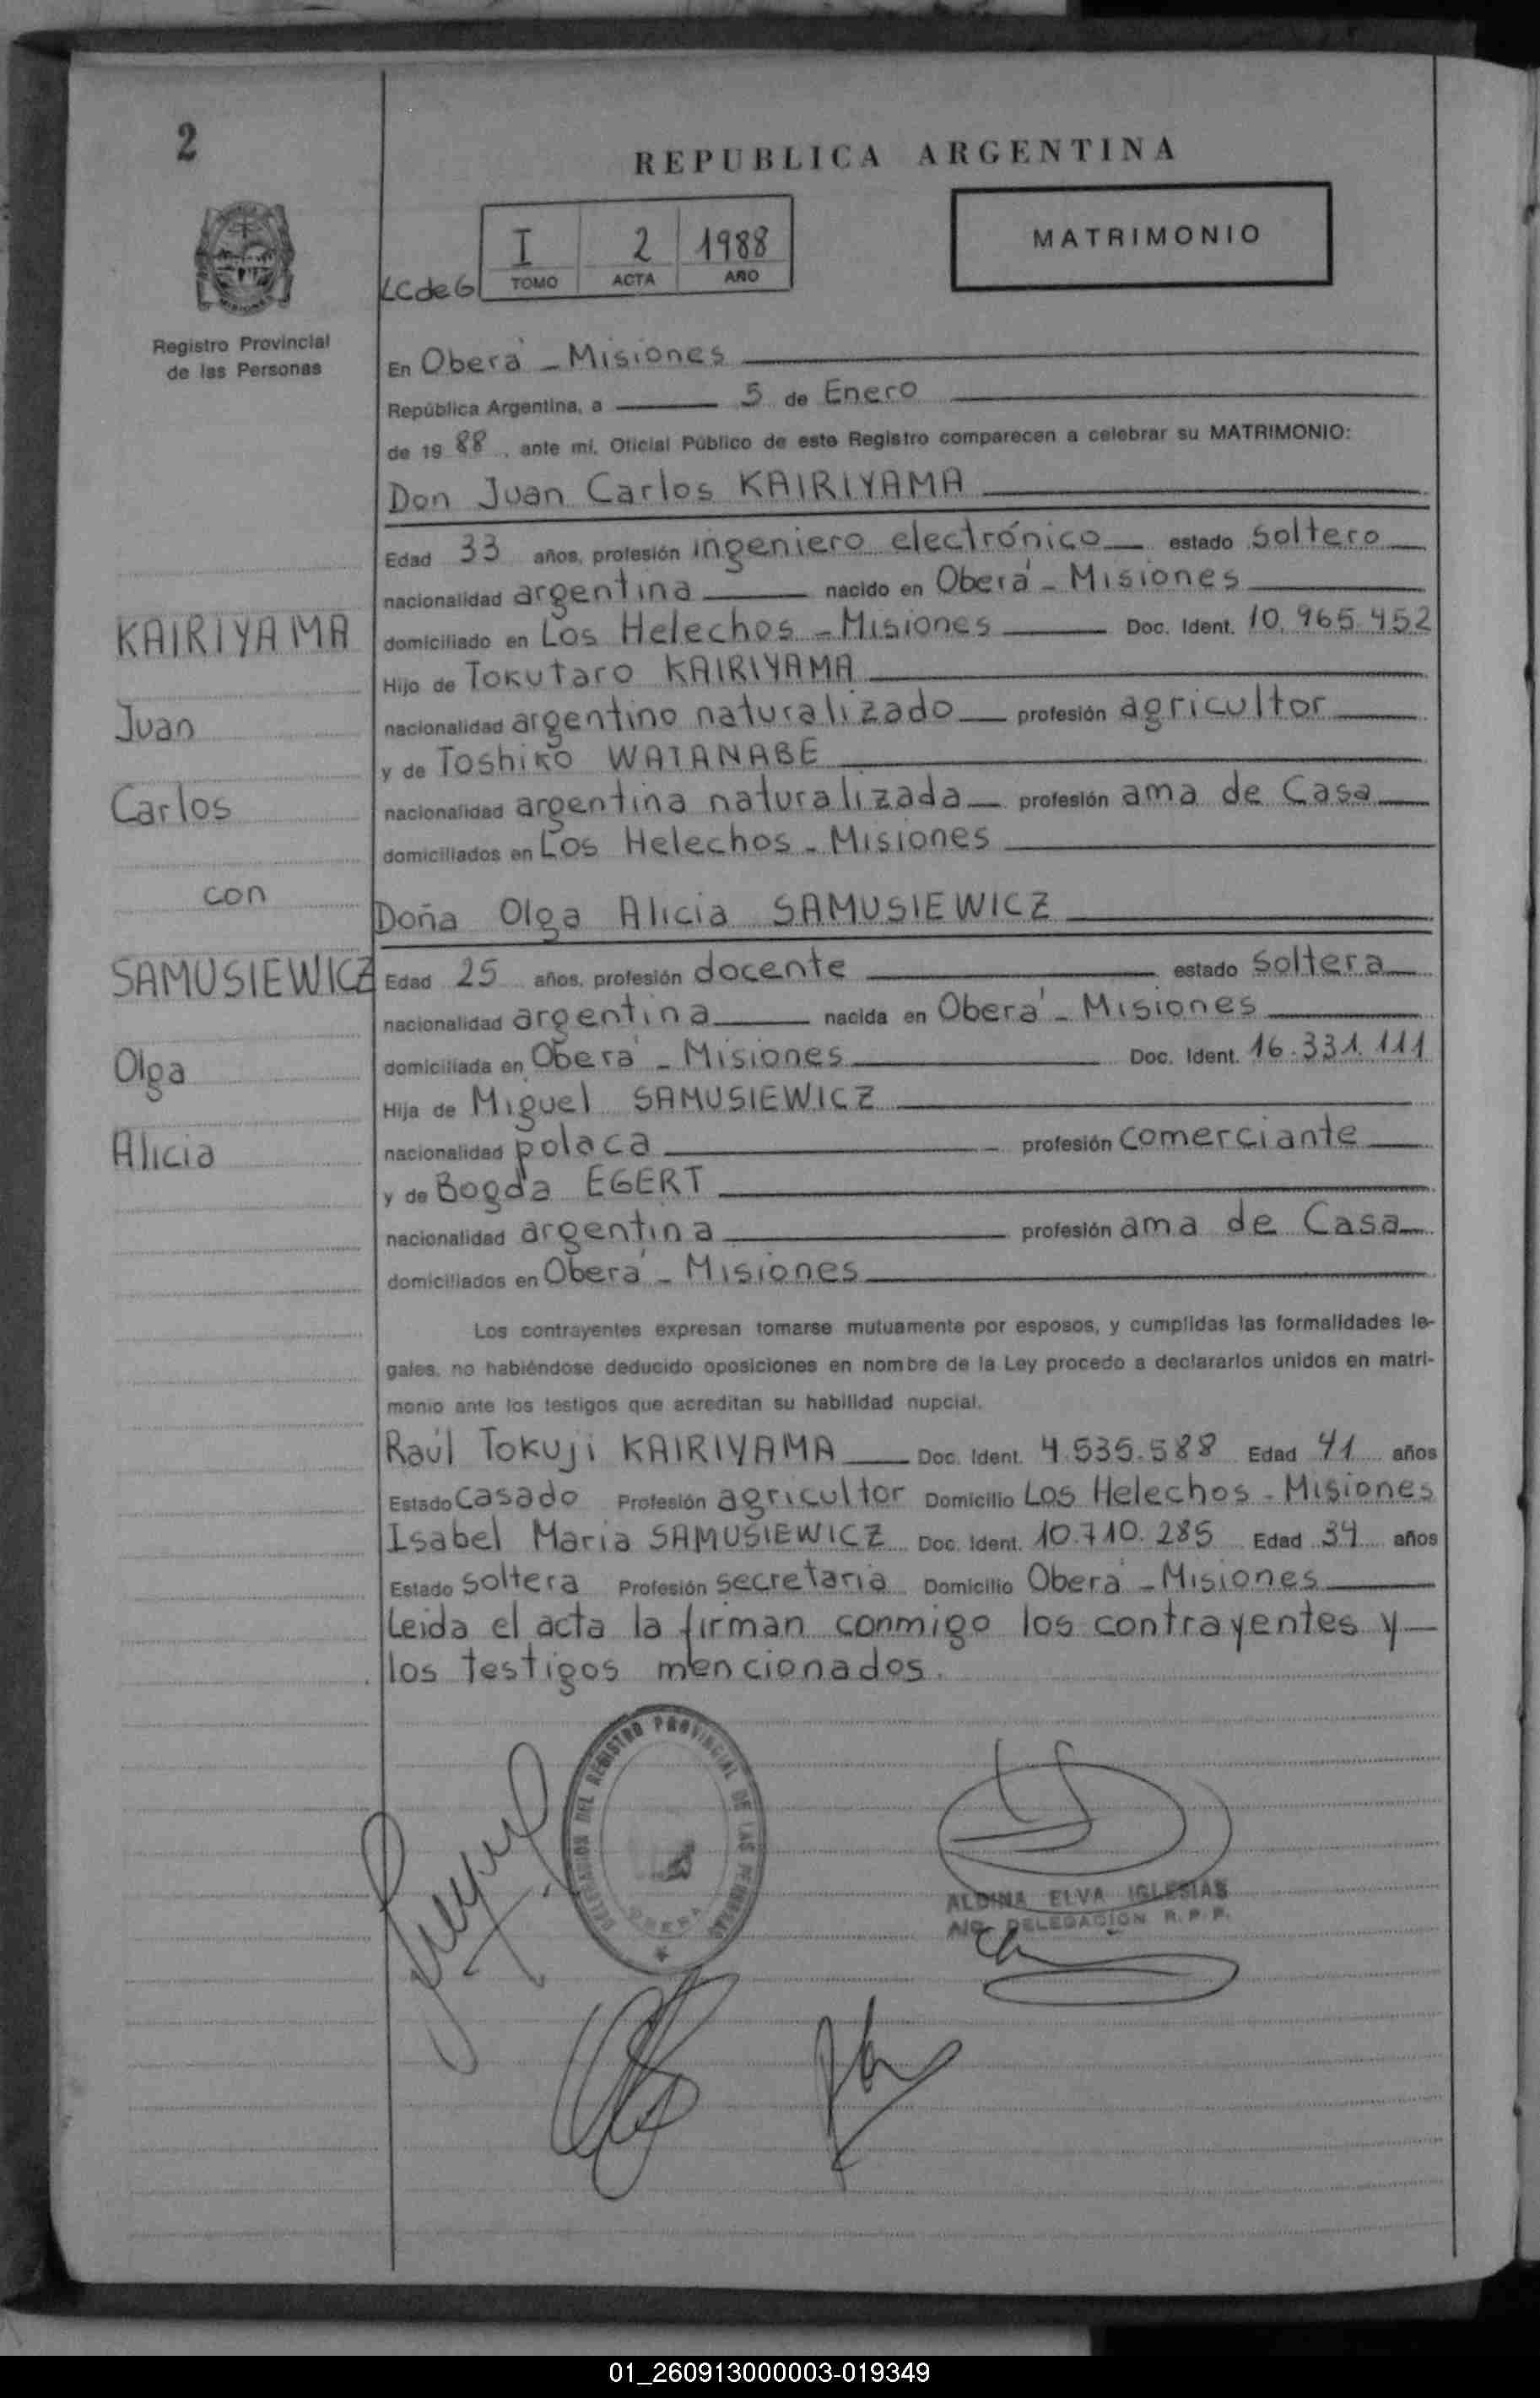 2
REPUBLICA ARGENTINA
I 2 1988
TOMO ACTA AÑO
LCdeG
MATRIMONIO
Registro Provincial
de las Personas
En Oberá - Misiones
República Argentina, a 5 de Enero
de 19 88, ante mí, Oficial Público de este Registro comparecen a celebrar su MATRIMONIO:
Don Juan Carlos KAIRIYAMA
Edad 33 años, profesión ingeniero electrónico estado soltero
nacionalidad argentina nacido en Oberá - Misiones
KAIRIYAMA
domiciliado en Los Helechos - Misiones Doc. Ident. 10.965.452
Hijo de Tokutaro KAIRIYAMA
Juan
nacionalidad argentino naturalizado profesión agricultor
y de Toshiko WATANABE
Carlos
nacionalidad argentina naturalizada profesión ama de Casa
domiciliados en Los Helechos - Misiones
con
Doña Olga Alicia SAMUSIEWICZ
SAMUSIEWICZ
Edad 25 años, profesión docente estado soltera
nacionalidad argentina nacida en Oberá - Misiones
Olga
domiciliada en Oberá - Misiones Doc. Ident. 16.331.111
Hija de Miguel SAMUSIEWICZ
Alicia
nacionalidad polaca profesión comerciante
y de Bogda EGERT
nacionalidad argentina profesión ama de Casa
domiciliados en Oberá - Misiones
Los contrayentes expresan tomarse mutuamente por esposos, y cumplidas las formalidades le-
gales, no habiéndose deducido oposiciones en nombre de la Ley procedo a declararlos unidos en matri-
monio ante los testigos que acreditan su habilidad nupcial.
Raúl Tokuji KAIRIYAMA Doc. Ident. 4.535.588 Edad 41 años
Estado Casado Profesión agricultor Domicilio Los Helechos - Misiones
Isabel Maria SAMUSIEWICZ Doc. Ident. 10.710.285 Edad 34 años
Estado soltera Profesión secretaria Domicilio Oberá - Misiones
Leida el acta la firman conmigo los contrayentes y
los testigos mencionados.
DELEGACION DEL REGISTRO PROVINCIAL DE LAS PERSONAS
OBERA
ALDINA ELVA IGLESIAS
A/C DELEGACIÓN R.P.P.
01_260913000003-019349